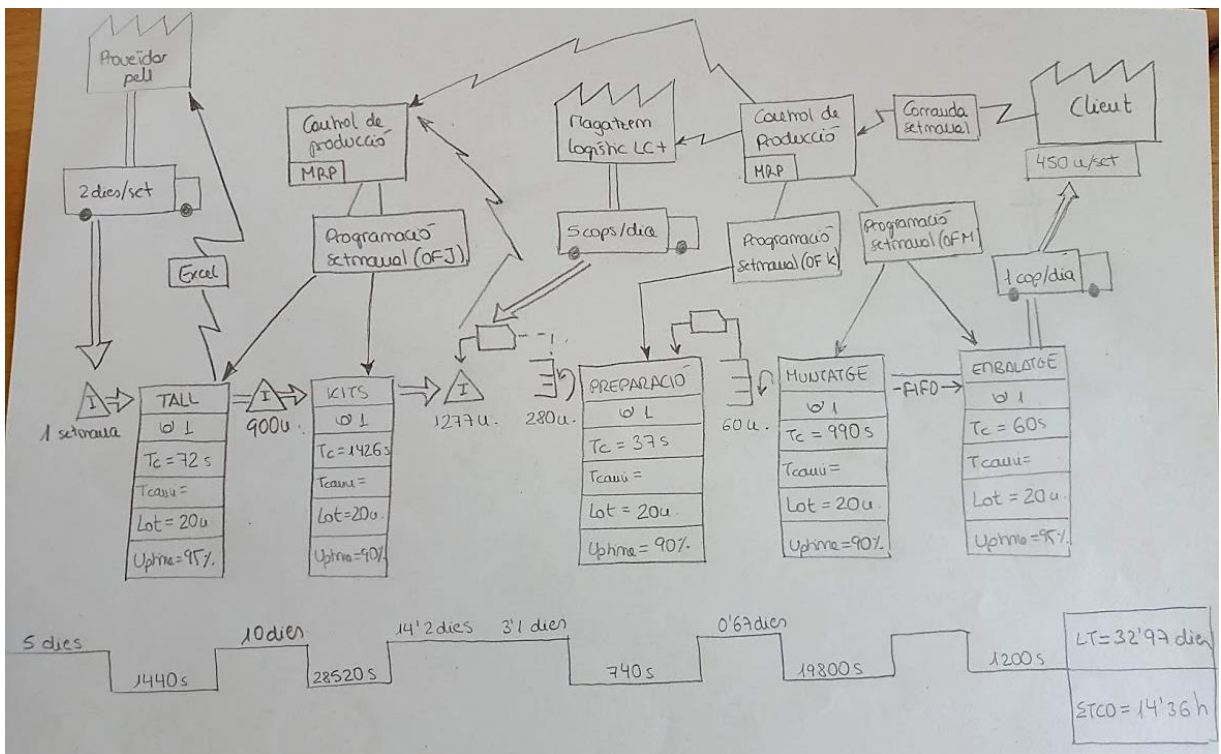 Proveïdor
pell
2 dies/set
Excel
Control de
producció
MRP
Programació
setmanal (OFJ)
Magatzem
logístic LC+
5 cops/dia
Control de
Producció
MRP
Comanda
setmanal
Client
450 u/set
Programació
setmanal (OFK)
Programació
setmanal (OFM)
1 cop/dia
I
1 setmana
TALL
1
Tc = 72 s
Tcanvi =
Lot = 20u
Uptime = 95%.
I
900u.
KITS
1
Tc = 1426s
Tcanvi =
Lot = 20u.
Uptime = 90%
I
1277u.
280u.
PREPARACIÓ
1
Tc = 37s
Tcanvi =
Lot = 20u.
Uptime = 90%.
60u.
MUNTATGE
1
Tc = 990s
Tcanvi =
Lot = 20u.
Uptime = 90%.
-FIFO→
EMBALATGE
1
Tc = 60s
Tcanvi =
Lot = 20u.
Uptime = 95%.
5 dies
1440s
10 dies
28520s
14'2 dies
3'1 dies
740s
0'67 dies
19800s
1200s
LT = 32'97 dies
ΣTCO = 14'36 h